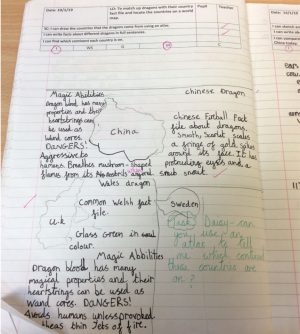 Date: 10/1/19
LO: To match up dragons with their country fact file and locate the countries on a world map.
Pupil
Teacher
SC: I can draw the countries that the dragons came from using an atlas.
I can write facts about different dragons in full sentences.
I can find which continent each country is on.
I
WS
G
Magic Abilities
dragon blood has many
properties and their
heartstrings can
be used as
wand cores.
DANGERS!
Aggressive to
humans. Breathes mushroom-shaped
flames from its nostrils
chinese Dragon
China
chinese Fatball Fact
file about dragons.
A smooth, Scarlet, scales
a fringe of gold spikes
around its face. It has
protruding eyes and a
snub snout.
Wales dragon
Common Welsh fact
file.
U.K
Sweden
Glass Green in
colour.
Magic Abbilities
Dragon blood has many
magical properties and their
heartstrings can be used as
wand cores. DANGERS!
Avoids humans unless provoked.
Has thin Jets of fire.
Daisy - can
you use an
atlas to tell
me which continent
these countries
are on?